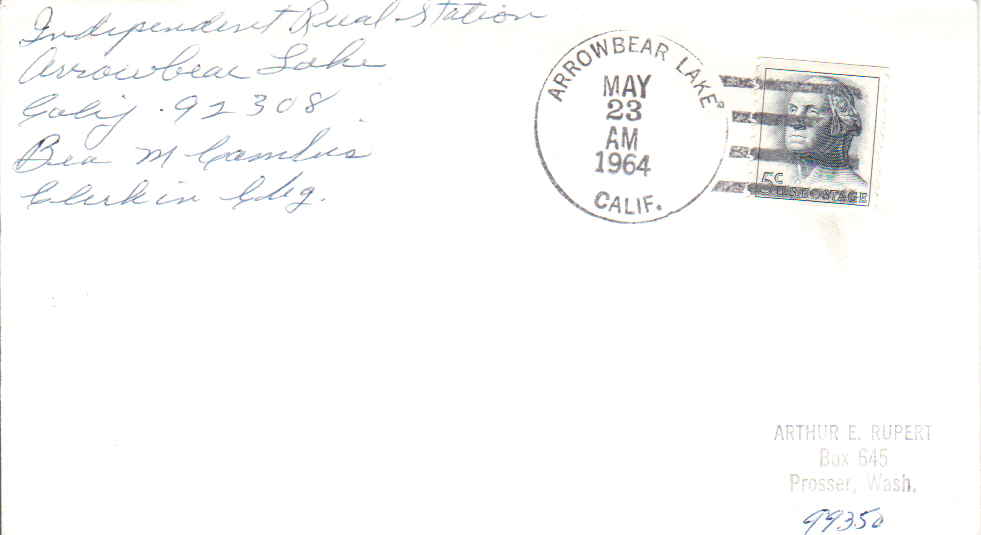 Independent Rural Station
Arrowbear Lake
Calif. 92308
Bea M
Clerk in Chg.
ARROWBEAR LAKE
MAY
23
AM
1964
CALIF.
5¢
U.S. POSTAGE
ARTHUR E. RUPERT
Box 645
Prosser, Wash.
99350